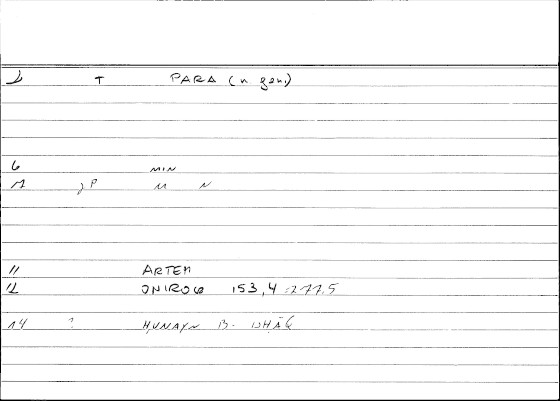 T PARA (n gen.)
6 MIN
M N
11 ARTEM
12 ONIROG 153,4 = 277.5
14 ? HUNAYN B. ISHĀQ